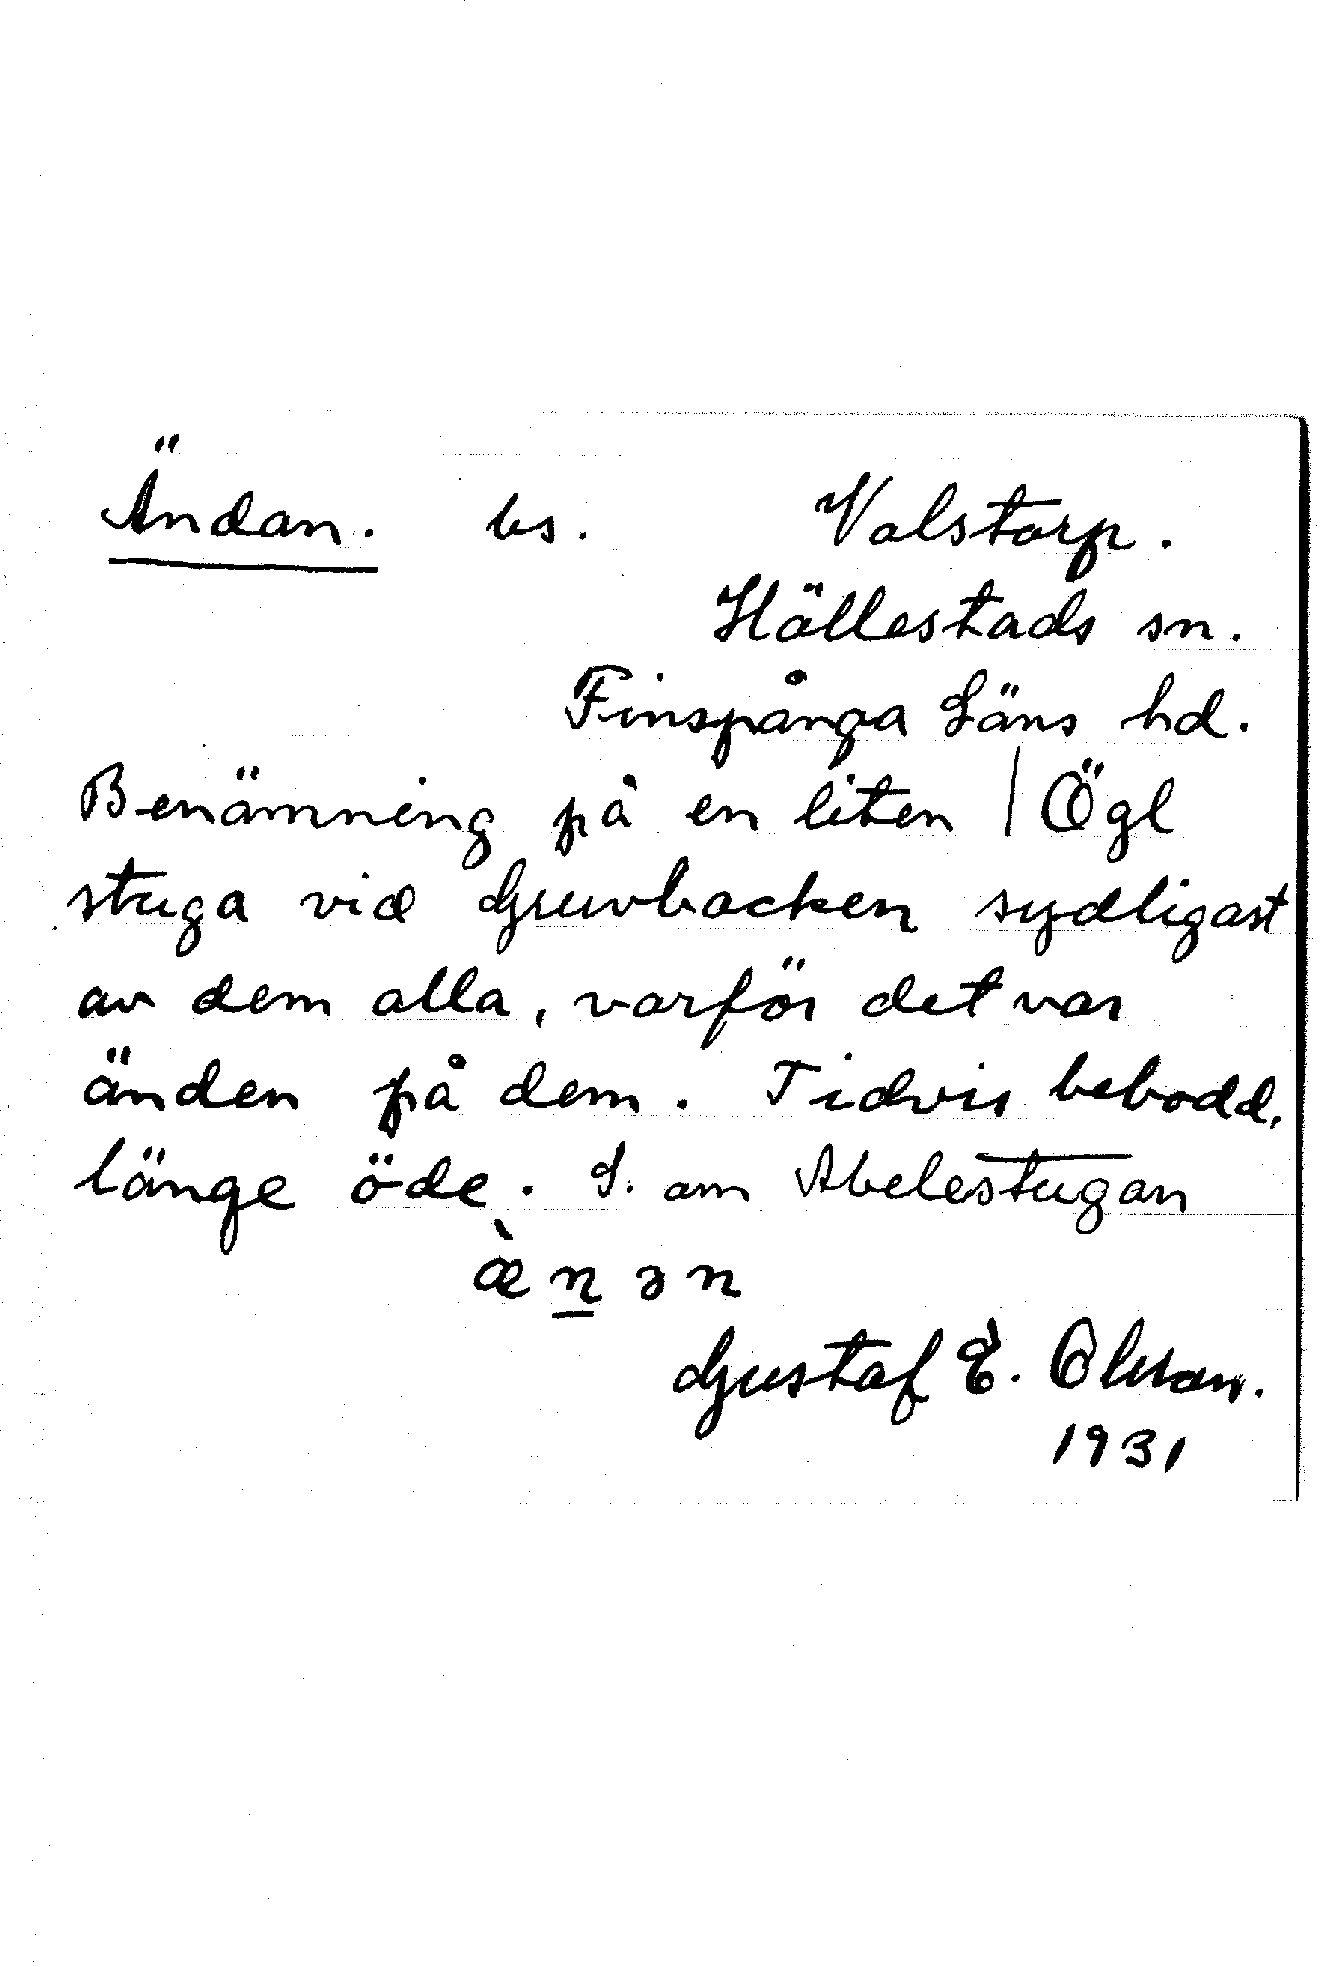 Ändan. bs. Valstorp.
Hällestads sn.
Finspånga Läns hd.
Benämning på en liten | Ögl
stuga vid Gruvbacken sydligast
av dem alla, varför det var
änden på dem. Tidvis bebodd,
länge öde. S. om Abelestugan
æ̀n̲ən
Gustaf E. Olsson.
1931